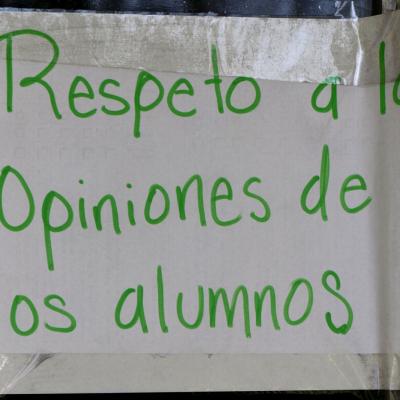 Respeto a l
Opiniones de
os alumnos